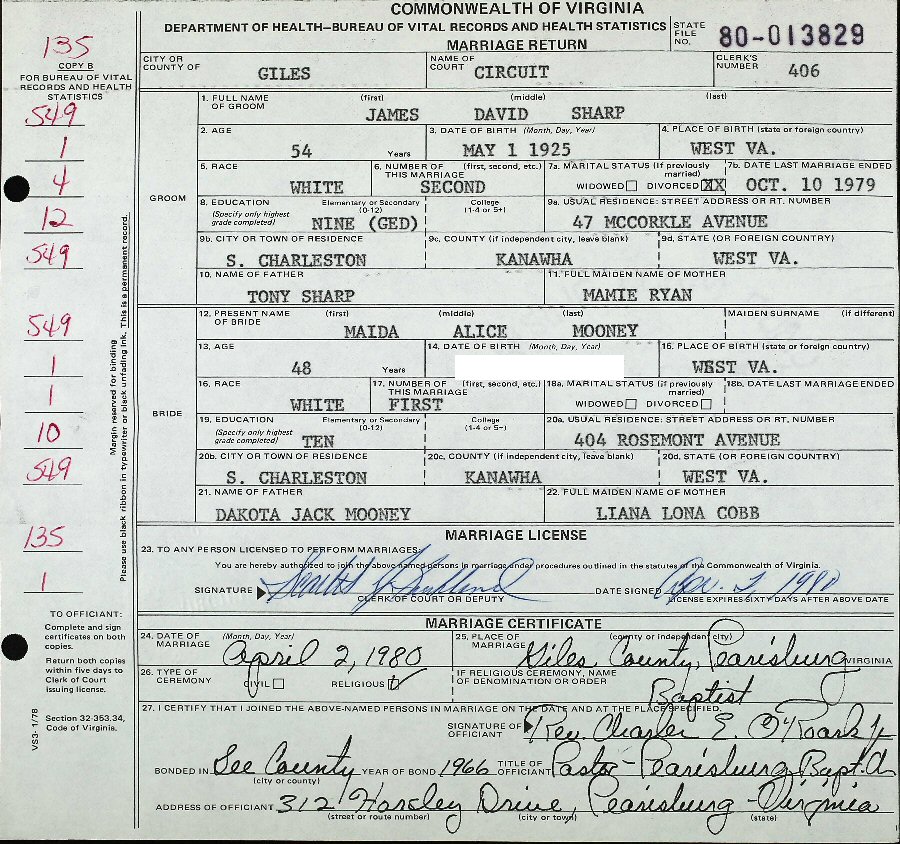 COMMONWEALTH OF VIRGINIA
DEPARTMENT OF HEALTH—BUREAU OF VITAL RECORDS AND HEALTH STATISTICS
MARRIAGE RETURN
STATE FILE NO. 80-013829
135
COPY B
FOR BUREAU OF VITAL RECORDS AND HEALTH STATISTICS
CITY OR COUNTY OF GILES
NAME OF COURT CIRCUIT
CLERK'S NUMBER 406
549
1
4
12
549
549
1
1
10
549
135
1
Margin reserved for binding
Please use black ribbon in typewriter or black unfading ink. This is a permanent record.
GROOM
1. FULL NAME OF GROOM (first) (middle) (last)
JAMES DAVID SHARP
2. AGE 54 Years
3. DATE OF BIRTH (Month, Day, Year) MAY 1 1925
4. PLACE OF BIRTH (state or foreign country) WEST VA.
5. RACE WHITE
6. NUMBER OF THIS MARRIAGE (first, second, etc.) SECOND
7a. MARITAL STATUS (if previously married) WIDOWED DIVORCED XX
7b. DATE LAST MARRIAGE ENDED OCT. 10 1979
8. EDUCATION (Specify only highest grade completed) Elementary or Secondary (0-12) NINE (GED) College (1-4 or 5+)
9a. USUAL RESIDENCE: STREET ADDRESS OR RT. NUMBER 47 MCCORKLE AVENUE
9b. CITY OR TOWN OF RESIDENCE S. CHARLESTON
9c. COUNTY (if independent city, leave blank) KANAWHA
9d. STATE (OR FOREIGN COUNTRY) WEST VA.
10. NAME OF FATHER TONY SHARP
11. FULL MAIDEN NAME OF MOTHER MAMIE RYAN
BRIDE
12. PRESENT NAME OF BRIDE (first) (middle) (last) MAIDEN SURNAME (if different)
MAIDA ALICE MOONEY
13. AGE 48 Years
14. DATE OF BIRTH (Month, Day, Year)
15. PLACE OF BIRTH (state or foreign country) WEST VA.
16. RACE WHITE
17. NUMBER OF THIS MARRIAGE (first, second, etc.) FIRST
18a. MARITAL STATUS (if previously married) WIDOWED DIVORCED
18b. DATE LAST MARRIAGE ENDED
19. EDUCATION (Specify only highest grade completed) Elementary or Secondary (0-12) TEN College (1-4 or 5+)
20a. USUAL RESIDENCE: STREET ADDRESS OR RT. NUMBER 404 ROSEMONT AVENUE
20b. CITY OR TOWN OF RESIDENCE S. CHARLESTON
20c. COUNTY (if independent city, leave blank) KANAWHA
20d. STATE (OR FOREIGN COUNTRY) WEST VA.
21. NAME OF FATHER DAKOTA JACK MOONEY
22. FULL MAIDEN NAME OF MOTHER LIANA LONA COBB
MARRIAGE LICENSE
23. TO ANY PERSON LICENSED TO PERFORM MARRIAGES:
You are hereby authorized to join the above-named persons in marriage under procedures outlined in the statutes of the Commonwealth of Virginia.
SIGNATURE
CLERK OF COURT OR DEPUTY
DATE SIGNED 2, 1980
LICENSE EXPIRES SIXTY DAYS AFTER ABOVE DATE
TO OFFICIANT:
Complete and sign certificates on both copies.
Return both copies within five days to Clerk of Court issuing license.
Section 32-353.34, Code of Virginia.
VS3- 1/78
MARRIAGE CERTIFICATE
24. DATE OF MARRIAGE (Month, Day, Year) April 2, 1980
25. PLACE OF MARRIAGE (county or independent city) Giles County, Pearisburg VIRGINIA
26. TYPE OF CEREMONY CIVIL RELIGIOUS
IF RELIGIOUS CEREMONY, NAME OF DENOMINATION OR ORDER Baptist
27. I CERTIFY THAT I JOINED THE ABOVE-NAMED PERSONS IN MARRIAGE ON THE DATE AND AT THE PLACE SPECIFIED.
SIGNATURE OF OFFICIANT Rev. Charles E. O'Roark Jr
BONDED IN Lee County (city or county)
YEAR OF BOND 1966
TITLE OF OFFICIANT Pastor - Pearisburg Bapt. Ch
ADDRESS OF OFFICIANT 312 Drive, Pearisburg - Virginia
(street or route number) (city or town) (state)